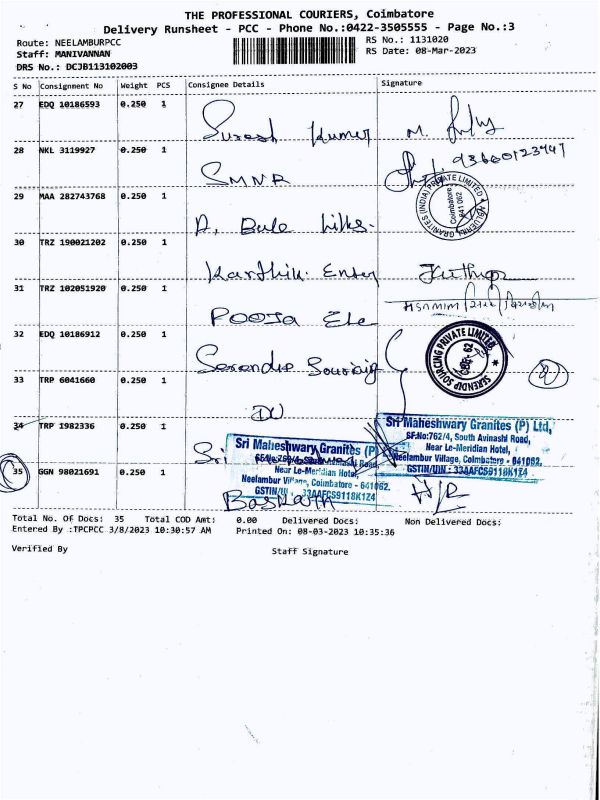 THE PROFESSIONAL COURIERS, Coimbatore
Delivery Runsheet - PCC - Phone No.:0422-3505555 - Page No.:3
Route: NEELAMBURPCC
RS No.: 1131020
Staff: MANIVANNAN
RS Date: 08-Mar-2023
DRS No.: DCJB113102003
S No Consignment No Weight PCS Consignee Details Signature
27 EDQ 10186593 0.250 1
Suresh Kumar M.
28 NKL 3119927 0.250 1
SMNR
29 MAA 282743768 0.250 1
A. Bala
30 TRZ 190021202 0.250 1
Karthik Enter
31 TRZ 102051920 0.250 1
POOJA Ele
32 EDQ 10186912 0.250 1
SERENDIP SOURCING PRIVATE LIMITED
33 TRP 6041660 0.250 1
34 TRP 1982336 0.250 1
Sri Maheshwary Granites (P) Ltd,
SF.No:762/4, South Avinashi Road,
Near Le-Meridian Hotel,
Neelambur Village, Coimbatore - 641062.
GSTIN/UIN : 33AAFCS9118K1Z4
Sri Maheshwary Granites (P)
SF.No:762/4, South Avinashi Road,
Near Le-Meridian Hotel,
Neelambur Village, Coimbatore - 641062.
GSTIN/UIN : 33AAFCS9118K1Z4
35 GGN 98021691 0.250 1
Total No. Of Docs: 35 Total COD Amt: 0.00 Delivered Docs: Non Delivered Docs:
Entered By :TPCPCC 3/8/2023 10:30:57 AM Printed On: 08-03-2023 10:35:36
Verified By Staff Signature